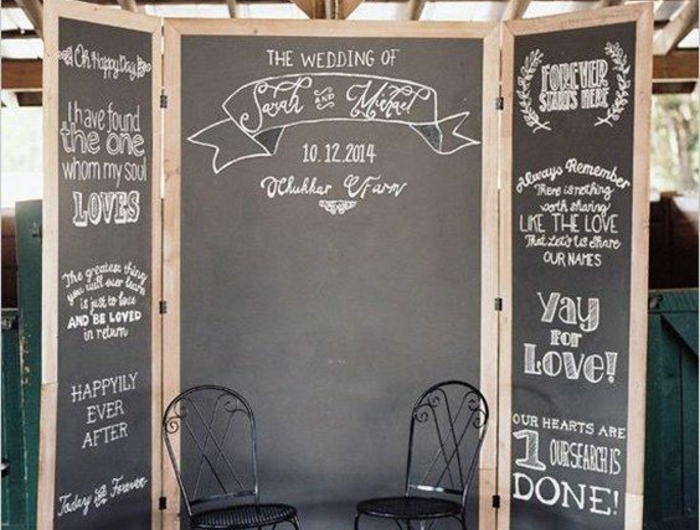 Oh Happy Day
I have found
the one
whom my soul
LOVES
The greatest thing
you will ever learn
is just to love
AND BE LOVED
in return
HAPPYILY
EVER
AFTER
Today & Forever
THE WEDDING OF
Sarah AND Michael
10.12.2014
Chukkar Farm
FOREVER
STARTS HERE
Always Remember
There is nothing
worth sharing
LIKE THE LOVE
That Let's Us Share
OUR NAMES
Yay
FOR
LOVE!
OUR HEARTS ARE
1 OUR SEARCH IS
DONE!